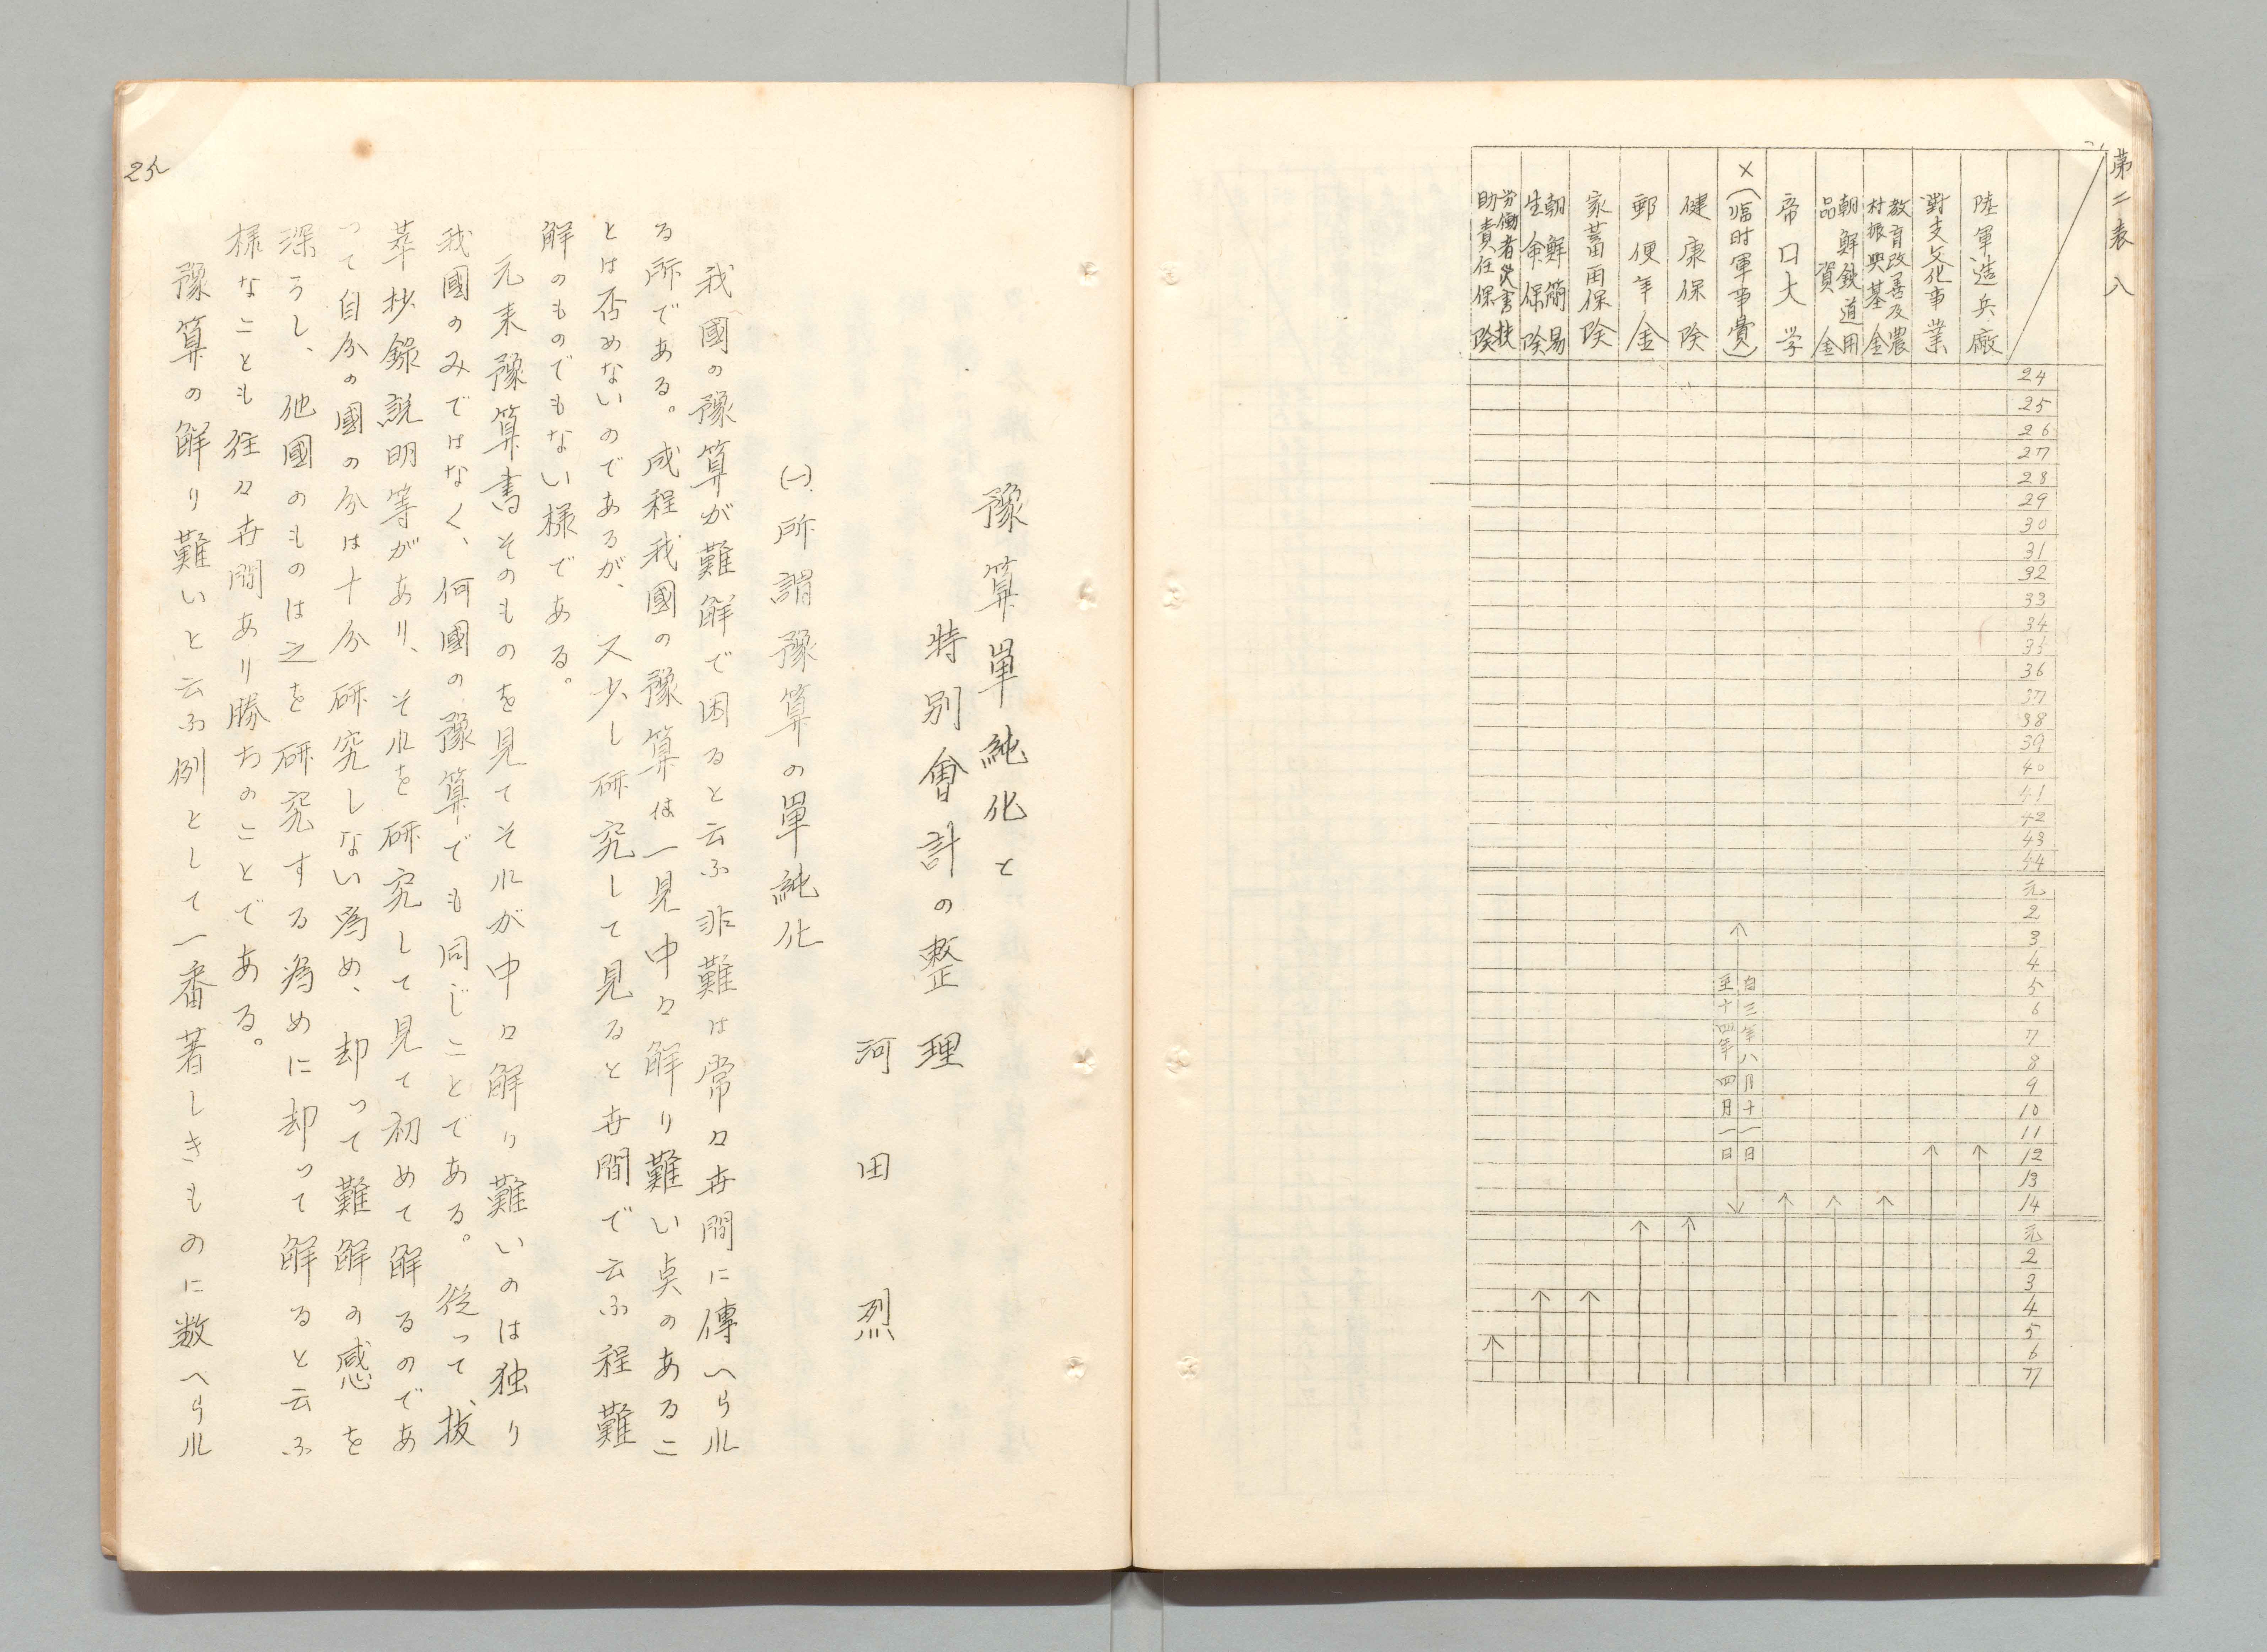 第二表 八
24
25
26
27
28
29
30
31
32
33
34
35
36
37
38
39
40
41
42
43
44
元
2
3
4
5
6
7
8
9
10
11
12
13
14
元
2
3
4
5
6
7
陸軍造兵廠
對支文化事業
教育改善及農
村振興基金
朝鮮鉄道用
品資金
帝口大学
×(臨时軍事費)
自三年八月十一日
至十四年四月一日
健康保険
郵便年金
家畜再保険
朝鮮簡易
生命保険
労働者災害扶
助責任保険
豫算單純化と
特別會計の整理
河田烈
(一)所謂豫算の單純化
我國の豫算が難解で困ると云ふ非難は常々世間に傳へらル
る所である。成程我國の豫算は一見中々解り難い点のあるこ
とは否めないのであるが、又少し研究して見ると世間で云ふ程難
解のものでもない様である。
元来豫算書そのものを見てそれが中々解り難いのは独り
我國のみではなく、何國の豫算でも同じことである。従って、抜
萃抄錄説明等があり、それを研究して見て初めて解るのであ
って自分の國の分は十分研究しない為め、却って難解の感を
深うし、他國のものは之を研究する為めに却って解ると云ふ
様なことも往々世間あり勝ちのことである。
豫算の解り難いと云ふ例として一番著しきものに数へらル